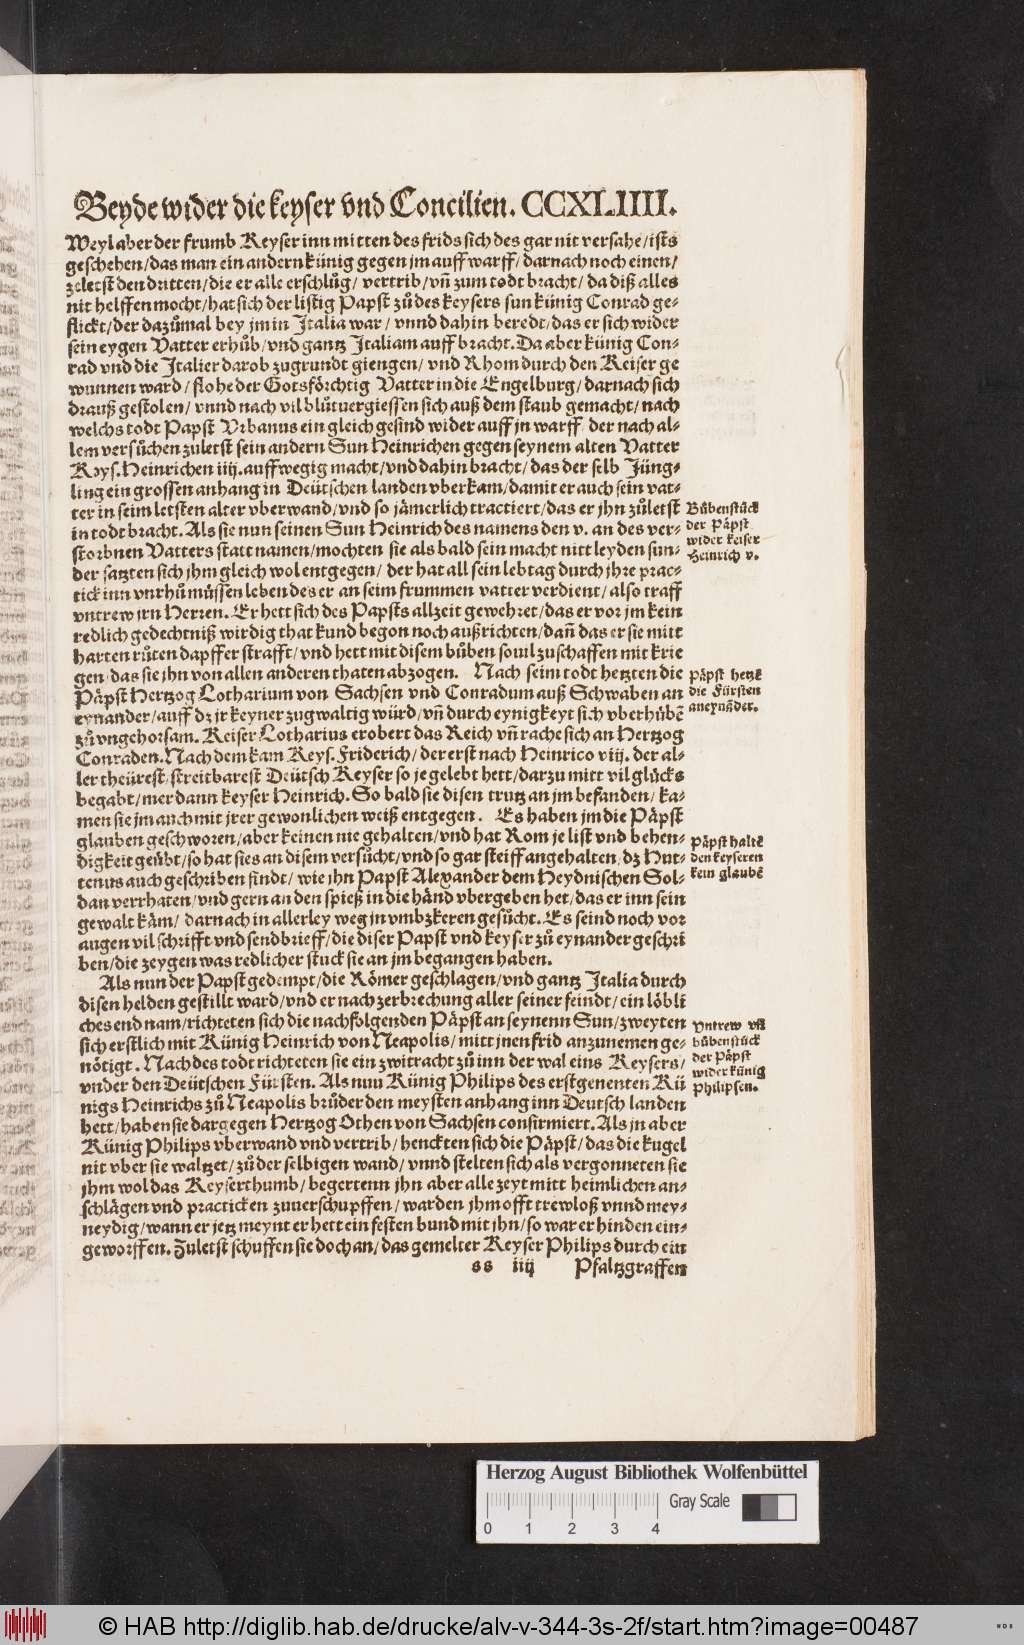 Beyde wider die keyser vnd Concilien. CCXLIIII.
Weyl aber der frumb Keyser inn mitten des frids sich des gar nit versahe/ists
geschehen/das man ein andern künig gegen jm auff warff/darnach noch einen/
zeletst den dritten/die er alle erschlůg/ vertrib/vñ zum todt bracht/da diß alles
nit helffen mocht/hat sich der listig Papst zů des keysers sun künig Conrad ge-
flickt/der dazůmal bey jm in Italia war/ vnnd dahin beredt/das er sich wider
sein eygen Vatter erhůb/vnd gantz Italiam auff bracht. Da aber künig Con-
rad vnd die Italier darob zugrundt giengen/ vnd Rhom durch den Keiser ge
wunnen ward/flohe der Gotsförchtig Vatter in die Engelburg/darnach sich
drauß gestolen/vnnd nach vil blůtuergiessen sich auß dem staub gemacht/nach
welchs todt Papst Vrbanus ein gleich gesind wider auff jn warff/ der nach al-
lem versůchen zuletst sein andern Sun Heinrichen gegen seynem alten Vatter
Keys. Heinrichen iiij. auffwegig macht/vnd dahin bracht/das der selb Jüng-
ling ein grossen anhang in Deütschen landen vberkam/damit er auch sein vat-
ter in seim letsten alter vberwand/vnd so jämerlich tractiert/das er jhn zůletst
in todt bracht. Als sie nun seinen Sun Heinrich des namens den v. an des ver-
storbnen Vatters statt namen/mochten sie als bald sein macht nitt leyden sun-
der satzten sich jhm gleich wol entgegen/ der hat all sein lebtag durch jhre prac-
tick inn vnrhů můssen leben des er an seim frummen vatter verdient/also traff
vntrew irn Herren. Er hett sich des Papsts allzeit gewehret/das er vor jm kein
redlich gedechtniß wirdig that kund begon noch außrichten/dañ das er sie mitt
harten růten dapffer strafft/vnd hett mit disem bůben souil zuschaffen mit krie
gen/das sie jhn von allen anderen thaten abzogen. Nach seim todt hetzten die
Päpst Hertzog Lotharium von Sachsen vnd Conradum auß Schwaben an
eynander/auff dz jr keyner zugwaltig würd/vñ durch eynigkeyt sich vberhůbē
zů vngehorsam. Keiser Lotharius erobert das Reich vñ rache sich an Hertzog
Conraden. Nach dem kam Keys. Friderich/der erst nach Heinrico viij. der al-
ler theürest/streitbarest Deütsch Keyser so je gelebt hett/darzu mitt vil glücks
begabt/mer dann keyser Heinrich. So bald sie disen trutz an jm befanden/ka-
men sie jm auch mit jrer gewonlichen weiß entgegen. Es haben jm die Päpst
glauben geschworen/aber keinen nie gehalten/vnd hat Rom je list vnd behen-
digkeit geübt/so hat sies an disem versůcht/vnd so gar steiff angehalten/dz Hut-
tenus auch geschriben findt/ wie jhn Papst Alexander dem Heydnischen Sol-
dan verrhaten/vnd gern an den spieß in die händ vbergeben het/das er inn sein
gewalt käm/ darnach in allerley weg jn vmbzkeren gesůcht. Es seind noch vor
augen vil schrifft vnd sendbrieff/die diser Papst vnd keyser zů eynander geschri
ben/die zeygen was redlicher stuck sie an jm begangen haben.
Als nun der Papst gedempt/die Römer geschlagen/vnd gantz Italia durch
disen helden gestillt ward/vnd er nach zerbrechung aller seiner feindt/ein löbli
ches end nam/richteten sich die nachfolgenden Päpst an seynenn Sun/zweyten
sich erstlich mit Künig Heinrich von Neapolis/mitt jnen frid anzunemen ge-
nötigt. Nach des todt richteten sie ein zwitracht zů inn der wal eins Keysers/
vnder den Deütschen Fürsten. Als nuu Künig Philips des erstgenenten Kü
nigs Heinrichs zů Neapolis brůder den meysten anhang inn Deutsch landen
hett/haben sie dargegen Hertzog Othen von Sachsen confirmiert. Als jn aber
Künig Philips vberwand vnd vertrib/henckten sich die Päpst/das die kugel
nit vber sie waltzet/zů der selbigen wand/vnnd stelten sich als vergonneten sie
jhm wol das Keyserthumb/begertenn jhn aber alle zeyt mitt heimlichen an-
schlägen vnd practicken zuuerschupffen/warden jhm offt trewloß vnnd mey-
neydig/wann er jetz meynt er hett ein festen bund mit jhn/so war er hinden ein-
geworffen. Zuletst schuffen sie doch an/das gemelter Keyser Philips durch ein
ss iiij Pfaltzgraffen
Bůbenstück
der Päpst
wider keiser
Heinrich v.
Päpst hetzē
die Fürsten
aneynāder.
Päpst haltē
den keyseren
kein glaubē
Vntrew vñ
bůbenstück
der Päpst
wider künig
Philipsen.
Herzog August Bibliothek Wolfenbüttel
Gray Scale
0 1 2 3 4
© HAB http://diglib.hab.de/drucke/alv-v-344-3s-2f/start.htm?image=00487